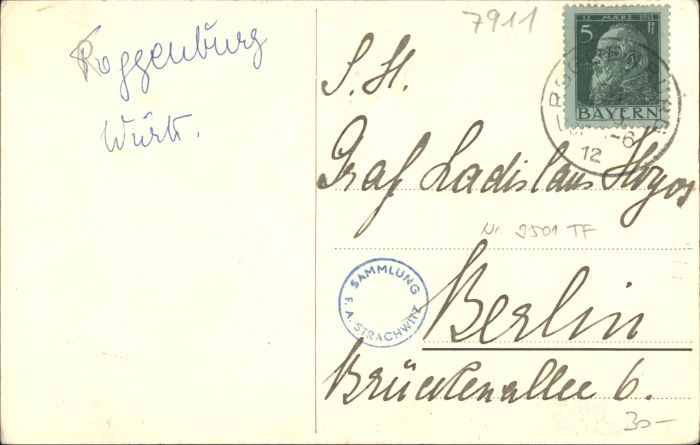 Roggenburg
Württ.
7911
12. MÄRZ 1911
5 Pf
BAYERN
12
S. H.
Graf Ladislaus Hoyos
Nr. 9501 TF
SAMMLUNG
F. A. STRACHWITZ
Berlin
Brückenallee 6.
30-